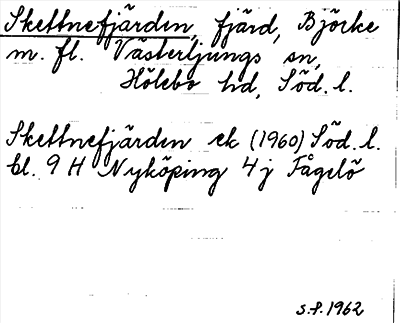 Skettnefjärden, fjärd, Björke
m. fl. Västerljungs sn,
Hölebo hd, Söd. l.
Skettnefjärden ek (1960) Söd. l.
bl. 9 H Nyköping 4 j Fågelö
S.P. 1962